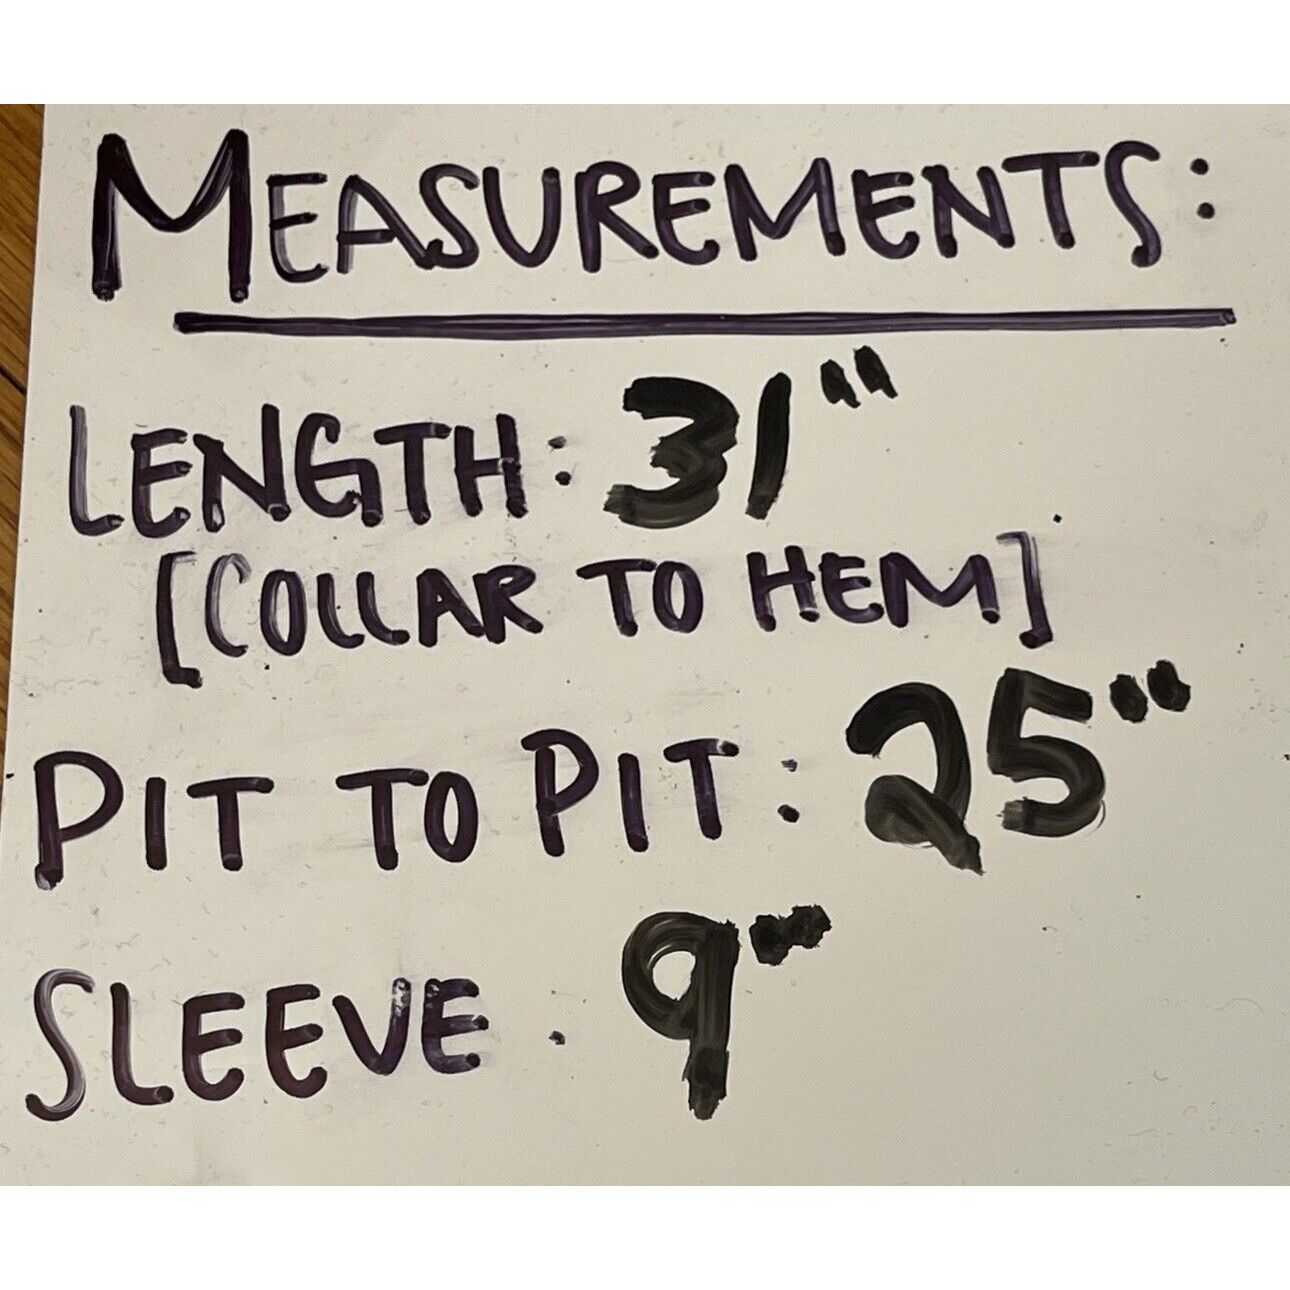 MEASUREMENTS:
LENGTH: 31"
[COLLAR TO HEM]
PIT TO PIT: 25"
SLEEVE. 9"